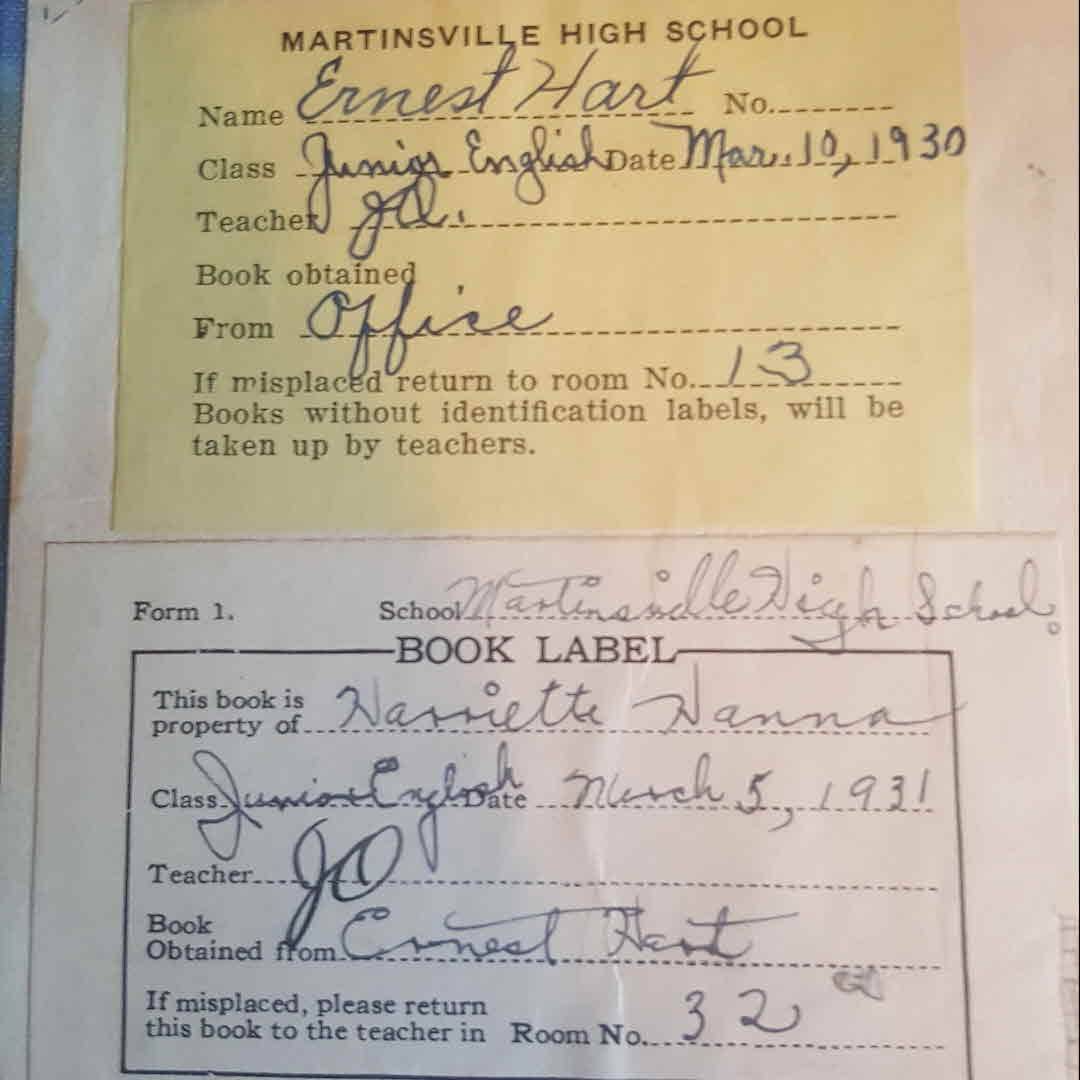 MARTINSVILLE HIGH SCHOOL
Name Ernest Hart No.
Class Junior English Date Mar. 10, 1930
Teacher JO.
Book obtained
From Office
If misplaced return to room No. 13
Books without identification labels, will be
taken up by teachers.
Form 1. School Martinsville High School.
BOOK LABEL
This book is
property of Harriette Hanna
Class Junior English Date March 5, 1931
Teacher JO
Book
Obtained from Ernest Hart
If misplaced, please return
this book to the teacher in Room No. 32